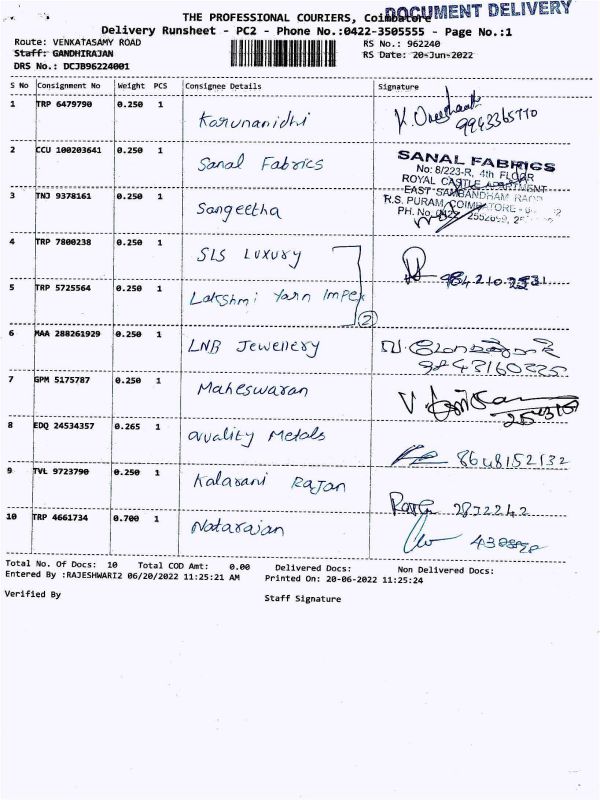 DOCUMENT DELIVERY
THE PROFESSIONAL COURIERS, Coimbatore
Delivery Runsheet - PC2 - Phone No.:0422-3505555 - Page No.:1
Route: VENKATASAMY ROAD RS No.: 962240
Staff: GANDHIRAJAN RS Date: 20-Jun-2022
DRS No.: DCJB96224001
S No Consignment No Weight PCS Consignee Details Signature
1 TRP 6479790 0.250 1 Karunanidhi 9943365770
2 CCU 100203641 0.250 1 Sanal Fabrics
SANAL FABRICS
No: 8/223-R, 4th FLOOR
ROYAL CASTLE APARTMENT
EAST SAMBANDHAM ROAD
R.S. PURAM, COIMBATORE
PH. No. 0422 2552699,
3 TNJ 9378161 0.250 1 Sangeetha
4 TRP 7800238 0.250 1 SLS Luxury
5 TRP 5725564 0.250 1 Lakshmi Yarn Impex
2
6 MAA 288261929 0.250 1 LNB Jewellery
9843160225
7 GPM 5175787 0.250 1 Maheswaran
8 EDQ 24534357 0.265 1 Quality Metals 8648152132
9 TVL 9723790 0.250 1 Kalarani Rajan 2872242
10 TRP 4661734 0.700 1 Natarajan
Total No. Of Docs: 10 Total COD Amt: 0.00 Delivered Docs: Non Delivered Docs:
Entered By :RAJESHWARI2 06/20/2022 11:25:21 AM Printed On: 20-06-2022 11:25:24
Verified By Staff Signature